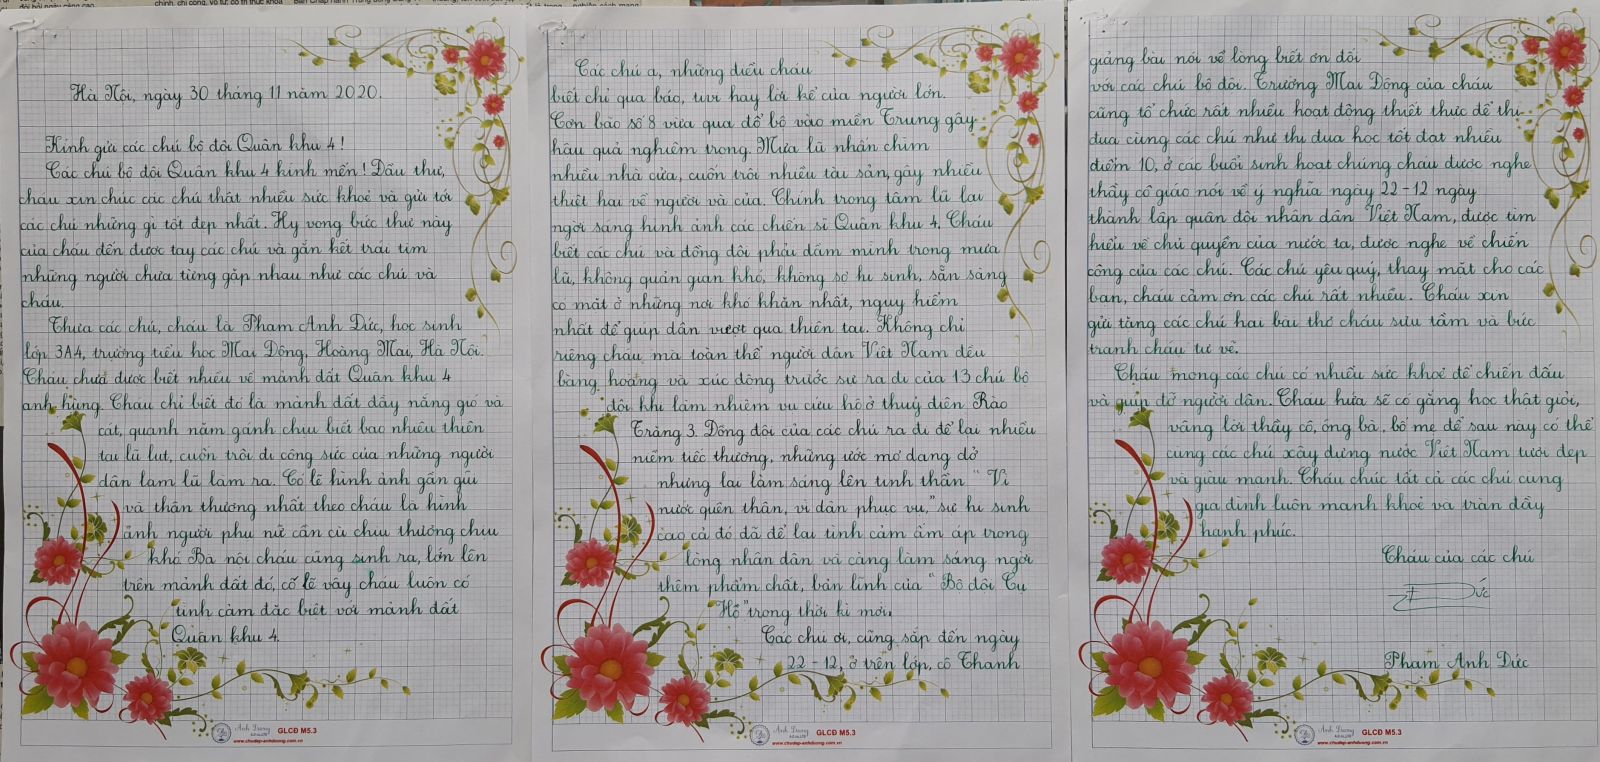 Hà Nội, ngày 30 tháng 11 năm 2020.
Kính gửi các chú bộ đội Quân khu 4!
Các chú bộ đội Quân khu 4 kính mến! Đầu thư,
cháu xin chúc các chú thật nhiều sức khoẻ và gửi tới
các chú những gì tốt đẹp nhất. Hy vọng bức thư này
của cháu đến được tay các chú và gắn kết trái tim
những người chưa từng gặp nhau như các chú và
cháu.
Thưa các chú, cháu là Phạm Anh Đức, học sinh
lớp 3A4, trường tiểu học Mai Động, Hoàng Mai, Hà Nội.
Cháu chưa được biết nhiều về mảnh đất Quân khu 4
anh hùng. Cháu chỉ biết đó là mảnh đất đầy nắng gió và
cát, quanh năm gánh chịu biết bao nhiêu thiên
tai lũ lụt, cuốn trôi đi công sức của những người
dân lam lũ làm ra. Có lẽ hình ảnh gần gũi
và thân thương nhất theo cháu là hình
ảnh người phụ nữ cần cù chịu thương chịu
khó. Bà nội cháu cũng sinh ra, lớn lên
trên mảnh đất đó, có lẽ vậy cháu luôn có
tình cảm đặc biệt với mảnh đất
Quân khu 4.
Anh Dương
GLCĐ M5.3
www.chudep-anhduong.com.vn
Các chú ạ, những điều cháu
biết chỉ qua báo, tivi hay lời kể của người lớn.
Cơn bão số 8 vừa qua đổ bộ vào miền Trung gây
hậu quả nghiêm trọng. Mưa lũ nhấn chìm
nhiều nhà cửa, cuốn trôi nhiều tài sản, gây nhiều
thiệt hại về người và của. Chính trong tâm lũ lại
ngời sáng hình ảnh các chiến sĩ Quân khu 4. Cháu
biết các chú và đồng đội phải dầm mình trong mưa
lũ, không quản gian khó, không sợ hi sinh, sẵn sàng
có mặt ở những nơi khó khăn nhất, nguy hiểm
nhất để giúp dân vượt qua thiên tai. Không chỉ
riêng cháu mà toàn thể người dân Việt Nam đều
bàng hoàng và xúc động trước sự ra đi của 13 chú bộ
đội khi làm nhiệm vụ cứu hộ ở thuỷ điện Rào
Trăng 3. Đồng đội của các chú ra đi để lại nhiều
niềm tiếc thương, những ước mơ dang dở
nhưng lại làm sáng lên tinh thần " Vì
nước quên thân, vì dân phục vụ," sự hi sinh
cao cả đó đã để lại tình cảm ấm áp trong
lòng nhân dân và càng làm sáng ngời
thêm phẩm chất, bản lĩnh của " Bộ đội Cụ
Hồ" trong thời kì mới.
Các chú ơi, cũng sắp đến ngày
22 - 12, ở trên lớp, cô Thanh
Anh Dương
GLCĐ M5.3
www.chudep-anhduong.com.vn
giảng bài nói về lòng biết ơn đối
với các chú bộ đội. Trường Mai Động của cháu
cũng tổ chức rất nhiều hoạt động thiết thực để thi
đua cùng các chú như thi đua học tốt đạt nhiều
điểm 10, ở các buổi sinh hoạt chúng cháu được nghe
thầy cô giáo nói về ý nghĩa ngày 22 - 12 ngày
thành lập quân đội nhân dân Việt Nam, được tìm
hiểu về chủ quyền của nước ta, được nghe về chiến
công của các chú. Các chú yêu quý, thay mặt cho các
bạn, cháu cảm ơn các chú rất nhiều. Cháu xin
gửi tặng các chú hai bài thơ cháu sưu tầm và bức
tranh cháu tự vẽ.
Cháu mong các chú có nhiều sức khoẻ để chiến đấu
và giúp đỡ người dân. Cháu hứa sẽ cố gắng học thật giỏi,
vâng lời thầy cô, ông bà, bố mẹ để sau này có thể
cùng các chú xây dựng nước Việt Nam tươi đẹp
và giàu mạnh. Cháu chúc tất cả các chú cùng
gia đình luôn mạnh khoẻ và tràn đầy
hạnh phúc.
Cháu của các chú
Đức
Phạm Anh Đức
Anh Dương
GLCĐ M5.3
www.chudep-anhduong.com.vn